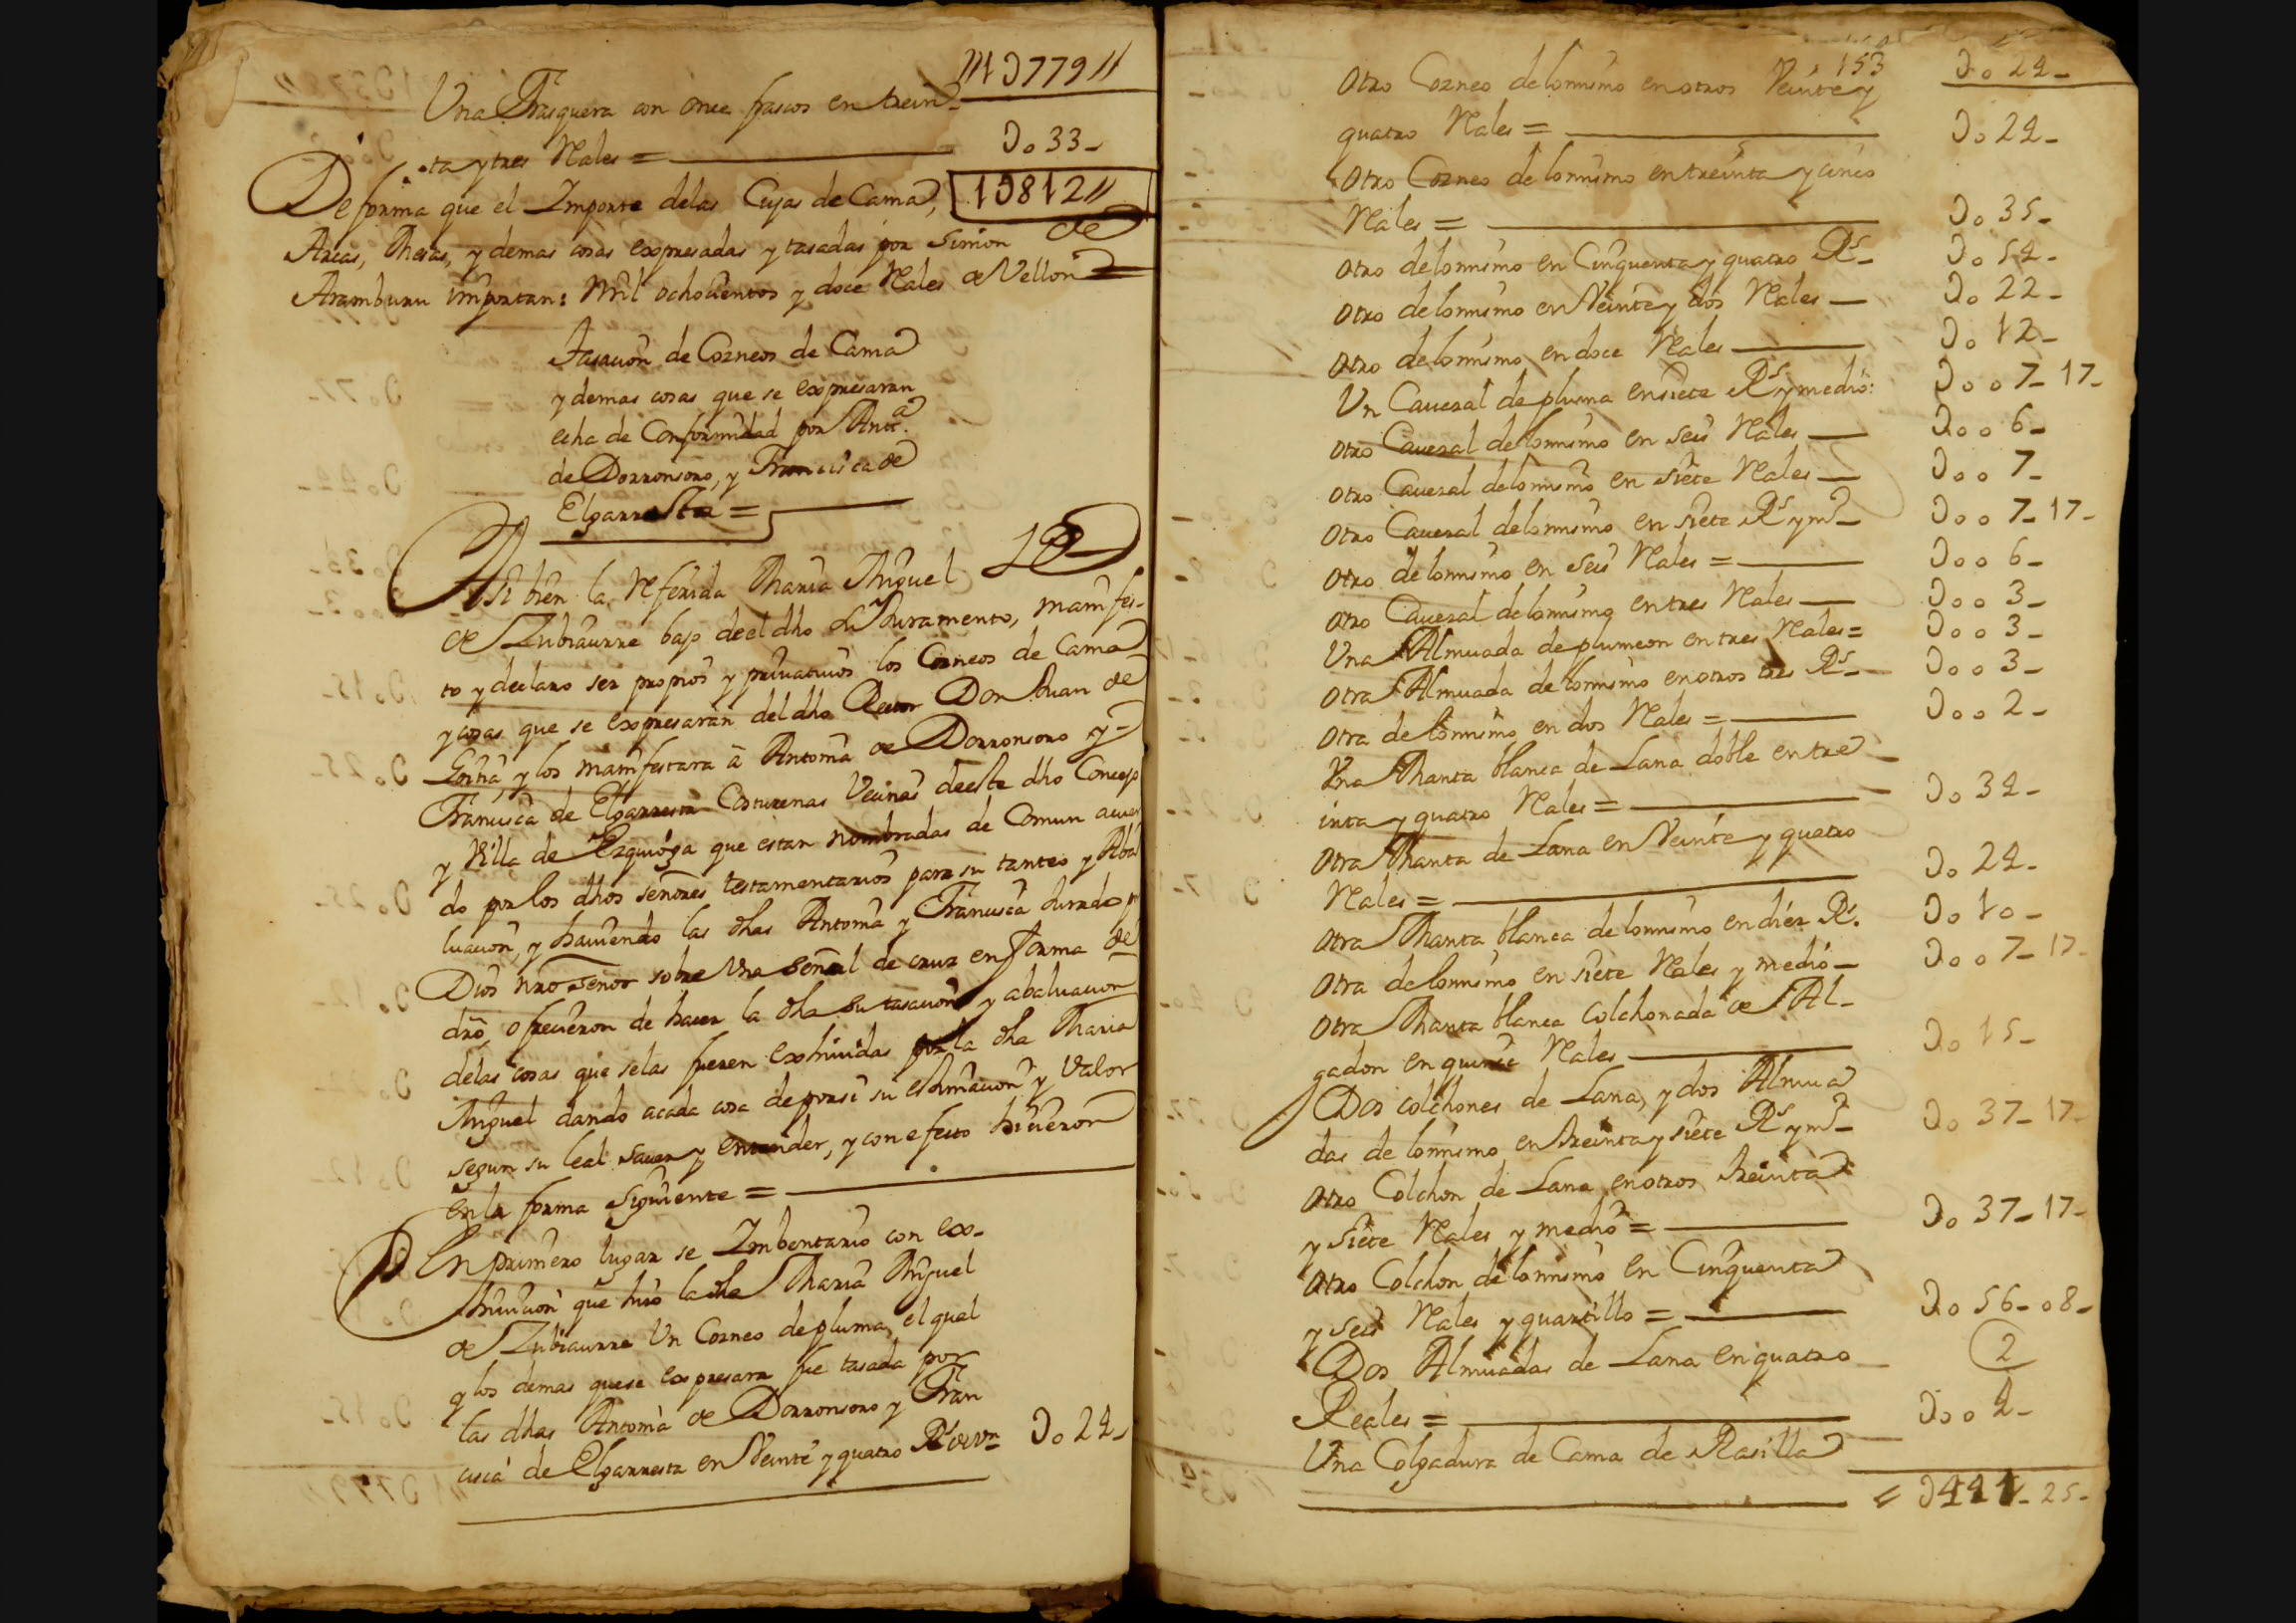 111U779 //
Una Frasquera con once frascos en trein-
ta y tres Rales = U o 33 -
De forma que el Importe delas Cujas de Cama, 1U812 //
Arcas, Mesas, y demas cosas expresadas y tasadas por Simon de
Aramburu importan: mil ochocientos y doce Rales de Vellon =
Tasacion de Corneos de Cama
y demas cosas que se expresaran
echa de Conformidad por Anta.
de Dorronsoro, y Francisca de
Elgarresta =
Asi bien la Referida Maria Miguel
de Zubiaurre bajo de el dho Juramento, manifes-
to y declaro ser propios y privativos los Corneos de Cama
y cosas que se expresaran del dho Rector Don Juan de
y los manifestara â Antonia de Dorronsoro y
Francisca de Elgarresta Costureras Vecinas de este dho Concejo
y Villa de Ezquioga que estan nombradas de Comun acuer
do por los dhos señores testamentarios para su tanteo y Aba
luacion, y haviendo las dhas Antonia y Francisca Jurado p
Dios nro Señor sobre Una Señal de cruz en forma de
dro, ofrecieron de hacer la dha su tasacion y abaluacion
delas cosas que selas fueren exhividas por la dha Maria
Miguel dando acada cosa deporsi su estimacion y Valor
segun su leal saver y entender, y con efecto hicieron
en la forma siguiente =
En primero lugar se Imbentario con ex-
hivicion que hiso la dha Maria Miguel
de Zubiaurre Un Corneo de pluma, el qual
y los demas que se expresara fue tasada por
las dhas Antonia de Dorronsoro y Fran
cisca de Elgarresta en Veinte y quatro Rs de vn U o 24 -
153
U o 24 -
Otro Corneo delo mismo en otros Veinte y
quatro Rales = U o 24 -
Otro Corneo delo mismo en treinta y cinco
Rales = U o 35 -
Otro delo mismo en Cinquenta y quatro Rs - U o 54 -
Otro delo mismo en Veinte y dos Rales - U o 22 -
Otro delo mismo en doce Rales - U o 12 -
Un Caveral de pluma en siete Rs y medio: U o o 7 - 17 -
Otro Caveral delo mismo en seis Rales - U o o 6 -
Otro Caveral delo mismo en siete Rales - U o o 7 -
Otro Caveral delo mismo en siete Rs y mo - U o o 7 - 17 -
Otro delo mismo en seis Rales = U o o 6 -
Otro Caveral delo mismo en tres Rales - U o o 3 -
Una Almuada de plumeon en tres Rales = U o o 3 -
Otra Almuada delo mismo en otros tres Rs - U o o 3 -
Otra delo mismo en dos Rales = U o o 2 -
Una Manta blanca de Lana doble en tre
inta y quatro Rales = U o 34 -
Otra Manta de Lana en Veinte y quatro
Rales = U o 24 -
Otra Manta blanca delo mismo en diez Rs. U o 10 -
Otra delo mismo en siete Rales y medio - U o o 7 - 17 -
Otra Manta blanca Colchonada de Al-
gadon en quince Rales U o 15 -
Dos colchones de Lana, y dos Almua
das de lo mismo en treinta y siete Rs y mo - U o 37 - 17 -
Otro Colchon de Lana en otros treinta
y siete Rales y medio = U o 37 - 17 -
Otro Colchon delo mismo en Cinquenta
y seis Rales y quartillo = U o 56 - 08 -
Dos Almuadas de Lana en quatro 2
Reales = U o o 4 -
Una Colgadura de Cama de Rasilla